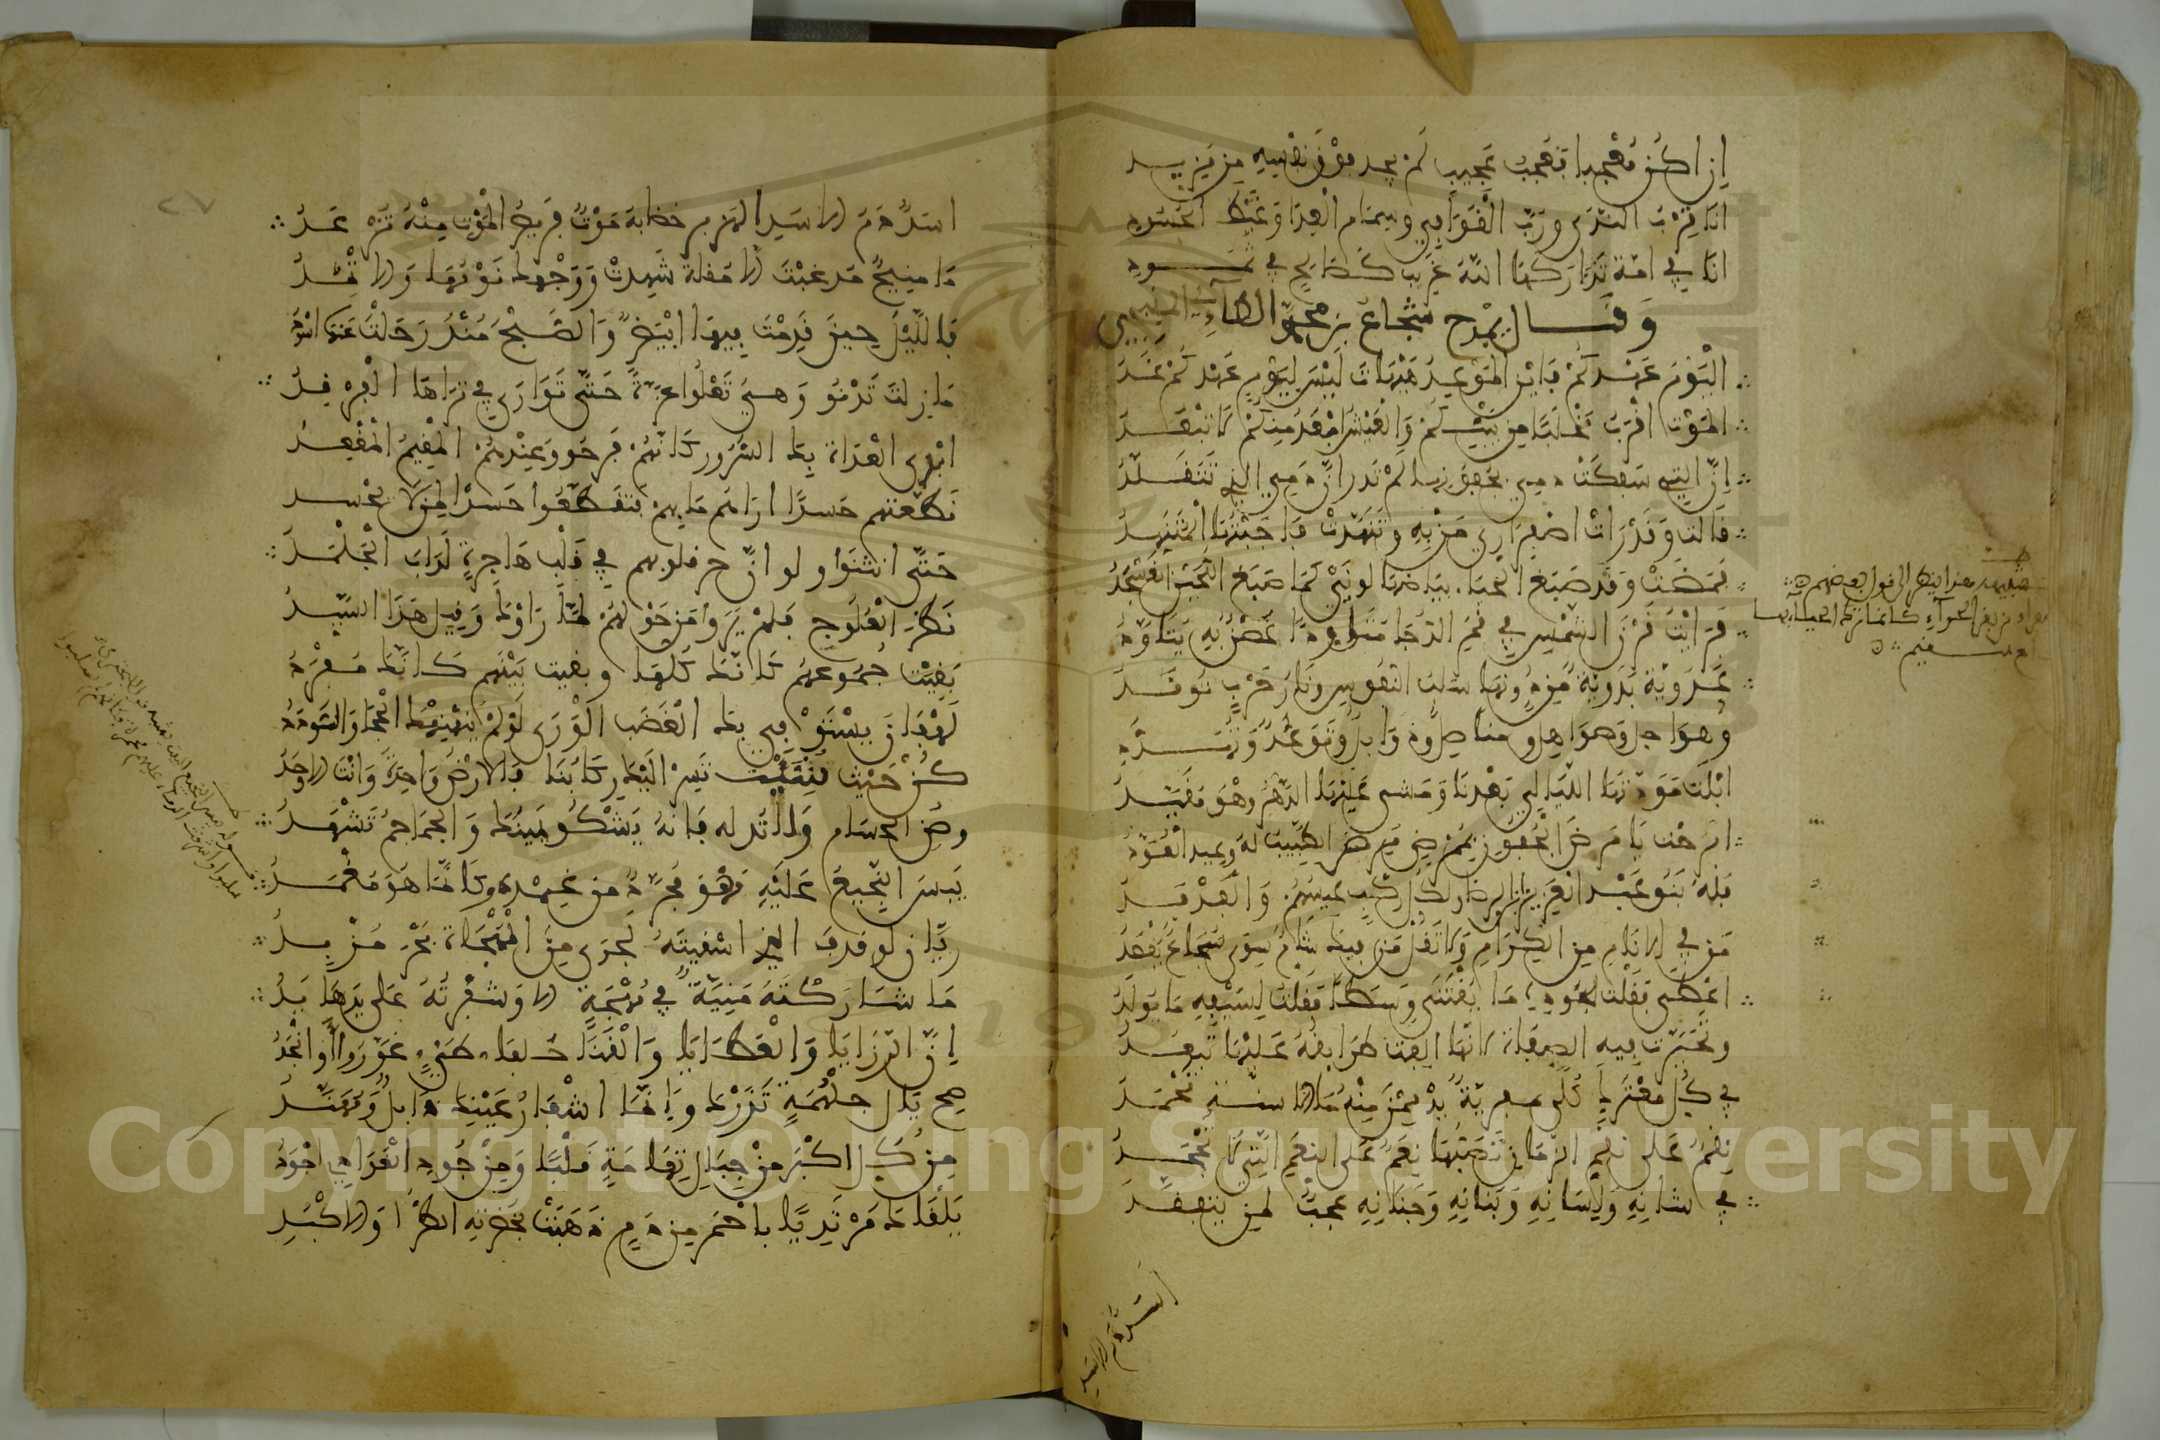 إن أكن معجبا فعجب عجيب لم يجد فوق نفسه من مزيد
أنا ترب الندى ورب القوافي وسمام العدا وغيظ الحسود
أنا في أمة تداركها الله غريب كصالح في ثمود
وقال يمدح شجاع بن محمد الطائي المنبجي
اليوم عهدكم فأين الموعد هيهات ليس ليوم عهدكم غد
الموت أقرب مخلبا من بينكم والعيش أبعد منكم لا تبعد
إن التي سفكت دمي بجفونها لم تدر أن دمي الذي تتقلد
قالت وقد رأت اصفراري من به وتنهدت فأجبتها المتنهد
فمضت وقد صبغ الحياء بياضها لوني كما صبغ اللجين العسجد
فرأيت قرن الشمس في قمر الدجا متأودا غصن به يتأود
عدوية بدوية من دونها سلب النفوس ونار حرب توقد
وهواجل وصواهل ومناصل وذوابل وتوعد وتهدد
أبلت مودتها الليالي بعدنا ومشى عليها الدهر وهو مقيد
أبرحت يا مرض الجفون بممرض مرض الطبيب له وعيد العود
فله بنو عبد العزيز بن الرضا ولكل ركب عيسهم والفدفد
من في الأنام من الكرام ولا تقل من فيك شأم سوى شجاع يقصد
أعطى فقلت لجوده ما يقتنى وسطا فقلت لسيفه ما يولد
وتحيرت فيه الصفات لأنها ألفت طرائقه عليها تبعد
في كل معترك كلى مفرية يذممن منه ما الأسنة تحمد
نقم على نقم الزمان تصبها نعم على النعم التي لا تجحد
في شانه ولسانه وبنانه وجنانه عجب لمن يتفقد
أسد دم الأسد
أسد دم الأسد الهزبر خضابه موت فريص الموت منه ترعد
ما منبج مذ غبت إلا مقلة سهدت ووجهك نومها والإثمد
فالليل حين قدمت فيها أبيض والصبح منذ رحلت عنها أسود
ما زلت تدنو وهي تعلو عزة حتى توارى في ثراها الفرقد
أبدى العداة بك السرور كأنهم فرحوا وعندهم المقيم المقعد
قطعتهم حسدا أراهم ما بهم فتقطعوا حسدا لمن لا يحسد
حتى انثنوا ولو ان حر قلوبهم في قلب هاجرة لذاب الجلمد
نظر العلوج فلم يروا من حولهم لما رأوك وقيل هذا السيد
بقيت جموعهم كأنك كلها وبقيت بينهم كأنك مفرد
لهفان يستوفي بك الغضب الورى لو لم ينهنهك الحجا والسودد
كن حيث شئت تسر إليك ركابنا فالأرض واحدة وأنت الأوحد
وصن الحسام ولا تذله فإنه يشكو يمينك والجماجم تشهد
يبس النجيع عليه فهو مجرد من غمده وكأنما هو مغمد
ريان لو قذف الذي أسقيته لجرى من المهجات بحر مزبد
ما شاركته منية في مهجة إلا وشفرته على يدها يد
إن الرزايا والعطايا والقنا حلفاء طيء غوروا أو أنجدوا
صح يال جلهمة تذرك وإنما أشفار عينك ذابل ومهند
من كل أكبر من جبال تهامة قلبا ومن جود الغوادي أجود
يلقاك مرتديا بأحمر من دم ذهبت بخضرته الطلا والأكبد